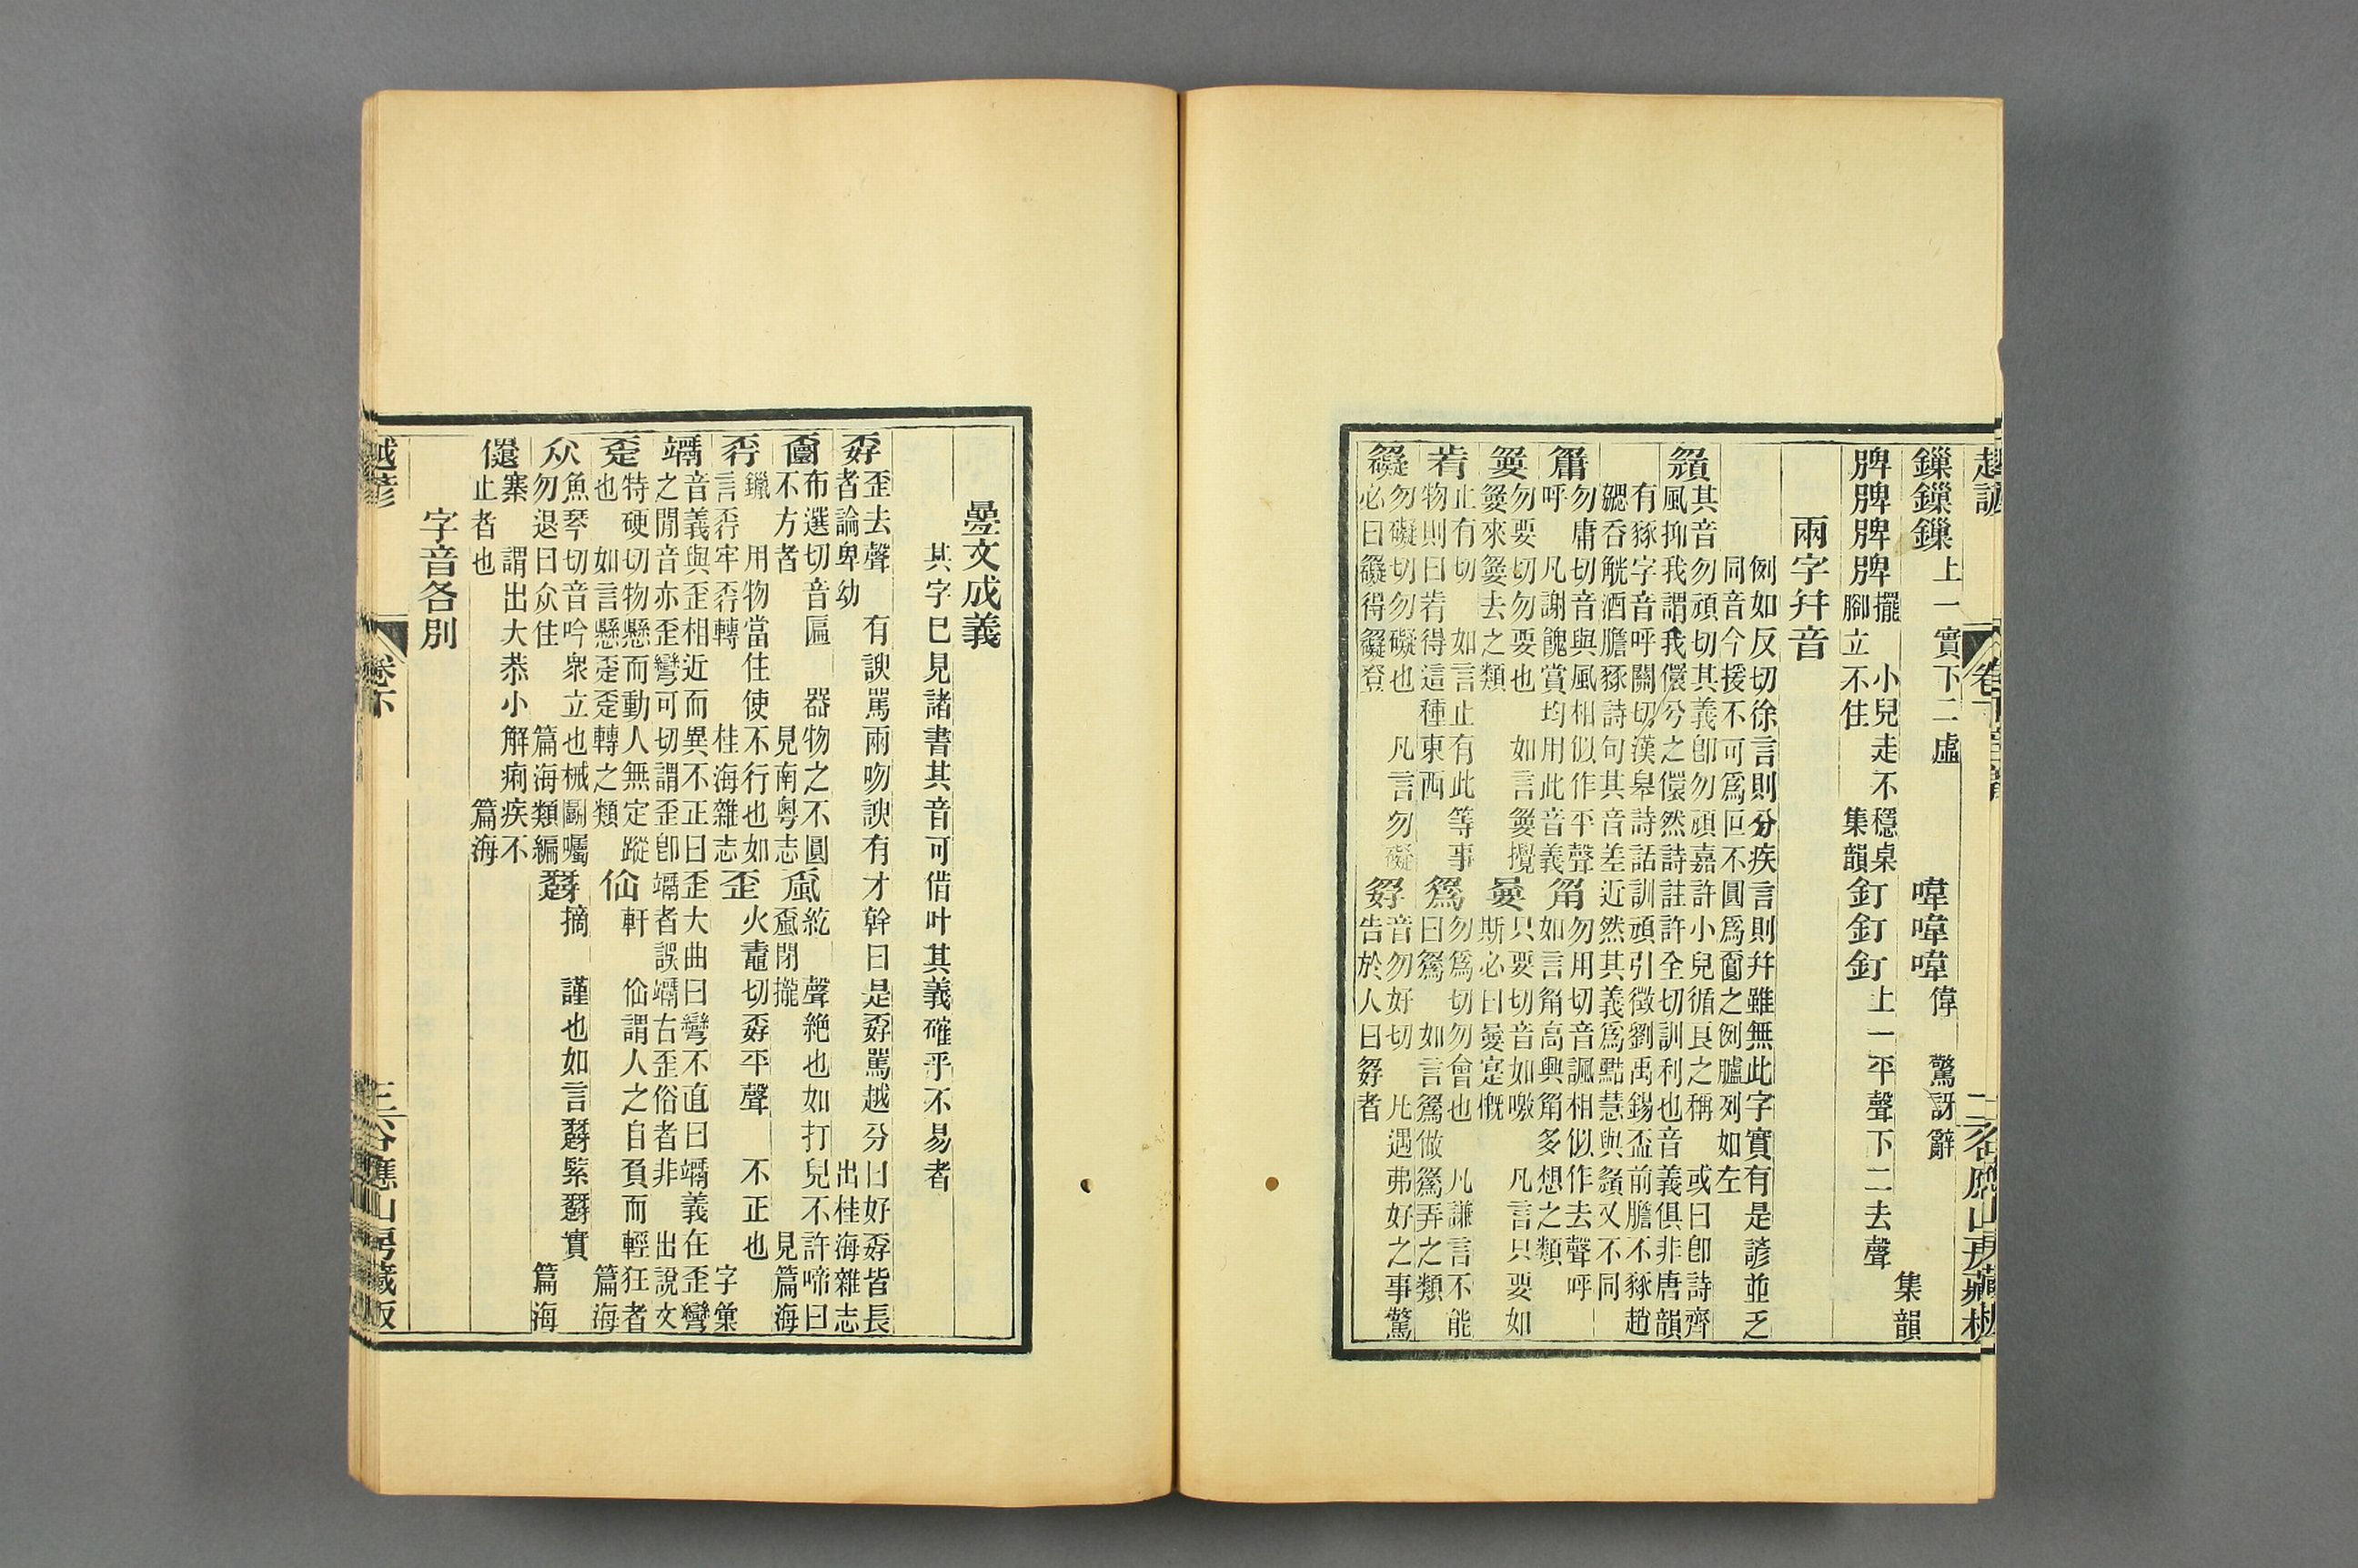 越諺
卷下
鏁鏁鏁 上一實下二虛
喡喡喡 偉 驚訝辭 集韻
脾脾脾脾 擺 小兒走不穩桌
腳立不住 集韻
釘釘釘 上一平聲下二去聲
兩字幷音
例如反切徐言則分疾言則幷雖無此字實有是諺並乏
同音今援不可爲叵不圓爲之例臚列如左
其音勿頑切其義卽勿頑嘉許小兒循良之稱 或曰卽詩齊
風抑我謂我儇兮之儇然詩註許全切訓利也音義俱非唐韻
有豥字音呼關切漢皋詩話訓頑引徵劉禹錫盃前膽不豥趙
勰吞觥酒膽豥詩句其音差近然其義爲黠慧與又不同
勿庸切音與風相似作平聲
呼 凡謝餽賞均用此音義
勿用切音諷相似作去聲呼
如言高興多想之類
勿要切勿要也 如言攪
來去之類
只要切音如噭 凡言只要如
斯必曰寔慨
止有切 如言止有此等事
物則曰若得這種東西
勿爲切勿會也 凡謙言不能
曰 如言做弄之類
勿礙切勿礙也 凡言勿礙
必曰得登
音勿好切 凡遇弗好之事驚
告於人曰者
二
谷應山房藏板
疊文成義
其字已見諸書其音可借叶其義確乎不易者
孬 歪去聲 有諛罵兩吻諛有才幹曰是孬罵越分曰好孬皆長
者論卑幼 出桂海雜志
布選切音匾 器物之不圓
不方者 見南粵志
紇 聲絶也如打兒不許啼曰
閉攏 見篇海
鑞 用物當住使不行也如
言牢轉 桂海雜志
歪 火鼃切孬平聲 不正也 字彙
音義與歪相近而異不正曰歪大曲曰彎不直曰竵義在歪彎
之閒音亦歪彎可切謂歪卽竵者誤竵古歪俗者非 出說文
特硬切物懸而動人無定蹤
也 如言懸轉之類
仚 軒 仚謂人之自負而輕狂者
篇海
㐺 魚琴切音吟衆立也械鬬囑
勿退曰㐺住 篇海類編
摘 謹也如言緊實
篇海
寨 謂出大恭小解痢疾不
止者也 篇海
字音各別
越諺
卷下
三
谷應山房藏板